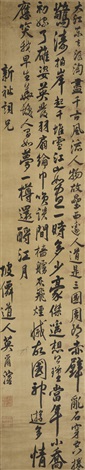 大江東去浪淘盡千古風流人物故壘西邊人道是三國周郎赤壁亂石穿空
驚濤拍岸捲起千堆雪江山如畫一時多少豪傑遙想公瑾當年小喬
初嫁了雄姿英發羽扇綸巾談笑間檣艣灰飛煙滅故國神遊多情
應笑我早生華髮人生如夢一樽還酹江月
新祉詞兄
道人莫爾